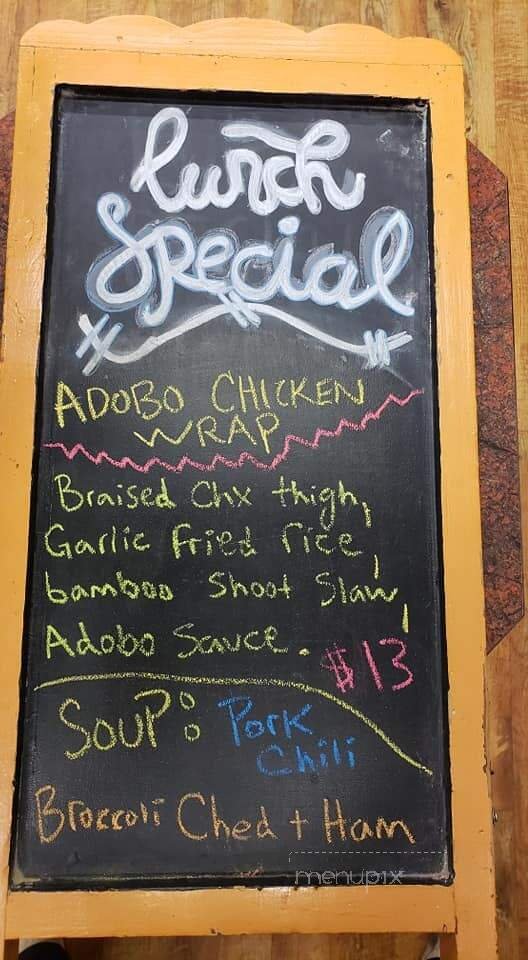 Lunch
Special
ADOBO CHICKEN
WRAP
Braised Chx thigh,
Garlic fried rice,
bamboo Shoot Slaw,
Adobo Sauce.
$13
SOUP: Pork
Chili
Broccoli Ched + Ham
menupix